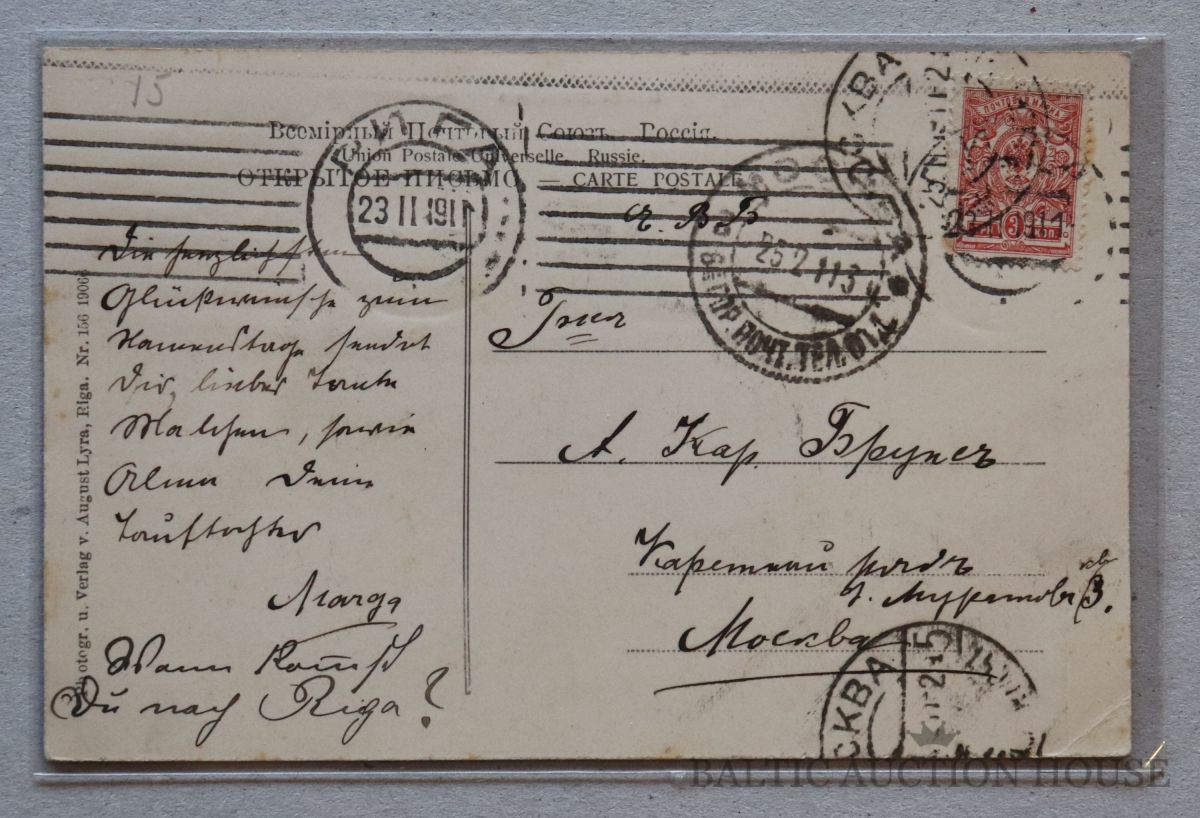 15
Всемірный Почтовый Союзъ. Россія.
Union Postale Universelle. Russie.
ОТКРЫТОЕ ПИСЬМО — CARTE POSTALE
РИГА
23 II 1911
МОСКВА
25 2 11 3
ГОР. ПОЧТ. ТЕЛ. ОТД.
МОСКВА
23 II 1911
Die herzlichsten
Glückwünsche zum
Namenstage sendet
Dir, lieber Tante
Malchen, sowie
Deine
Tauftochter
Marga
Wann kommst
Du nach Riga?
А. Кар.
Каретный рядъ
Москва
МОСКВА
Photogr. u. Verlag v. August Lyra, Riga. Nr. 156 1906
BALTIC AUCTION HOUSE